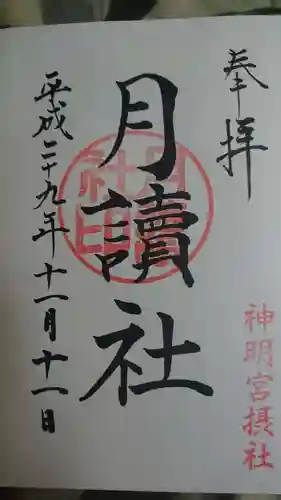 奉拝
月讀社
平成二十九年十一月十一日
神明宮摂社